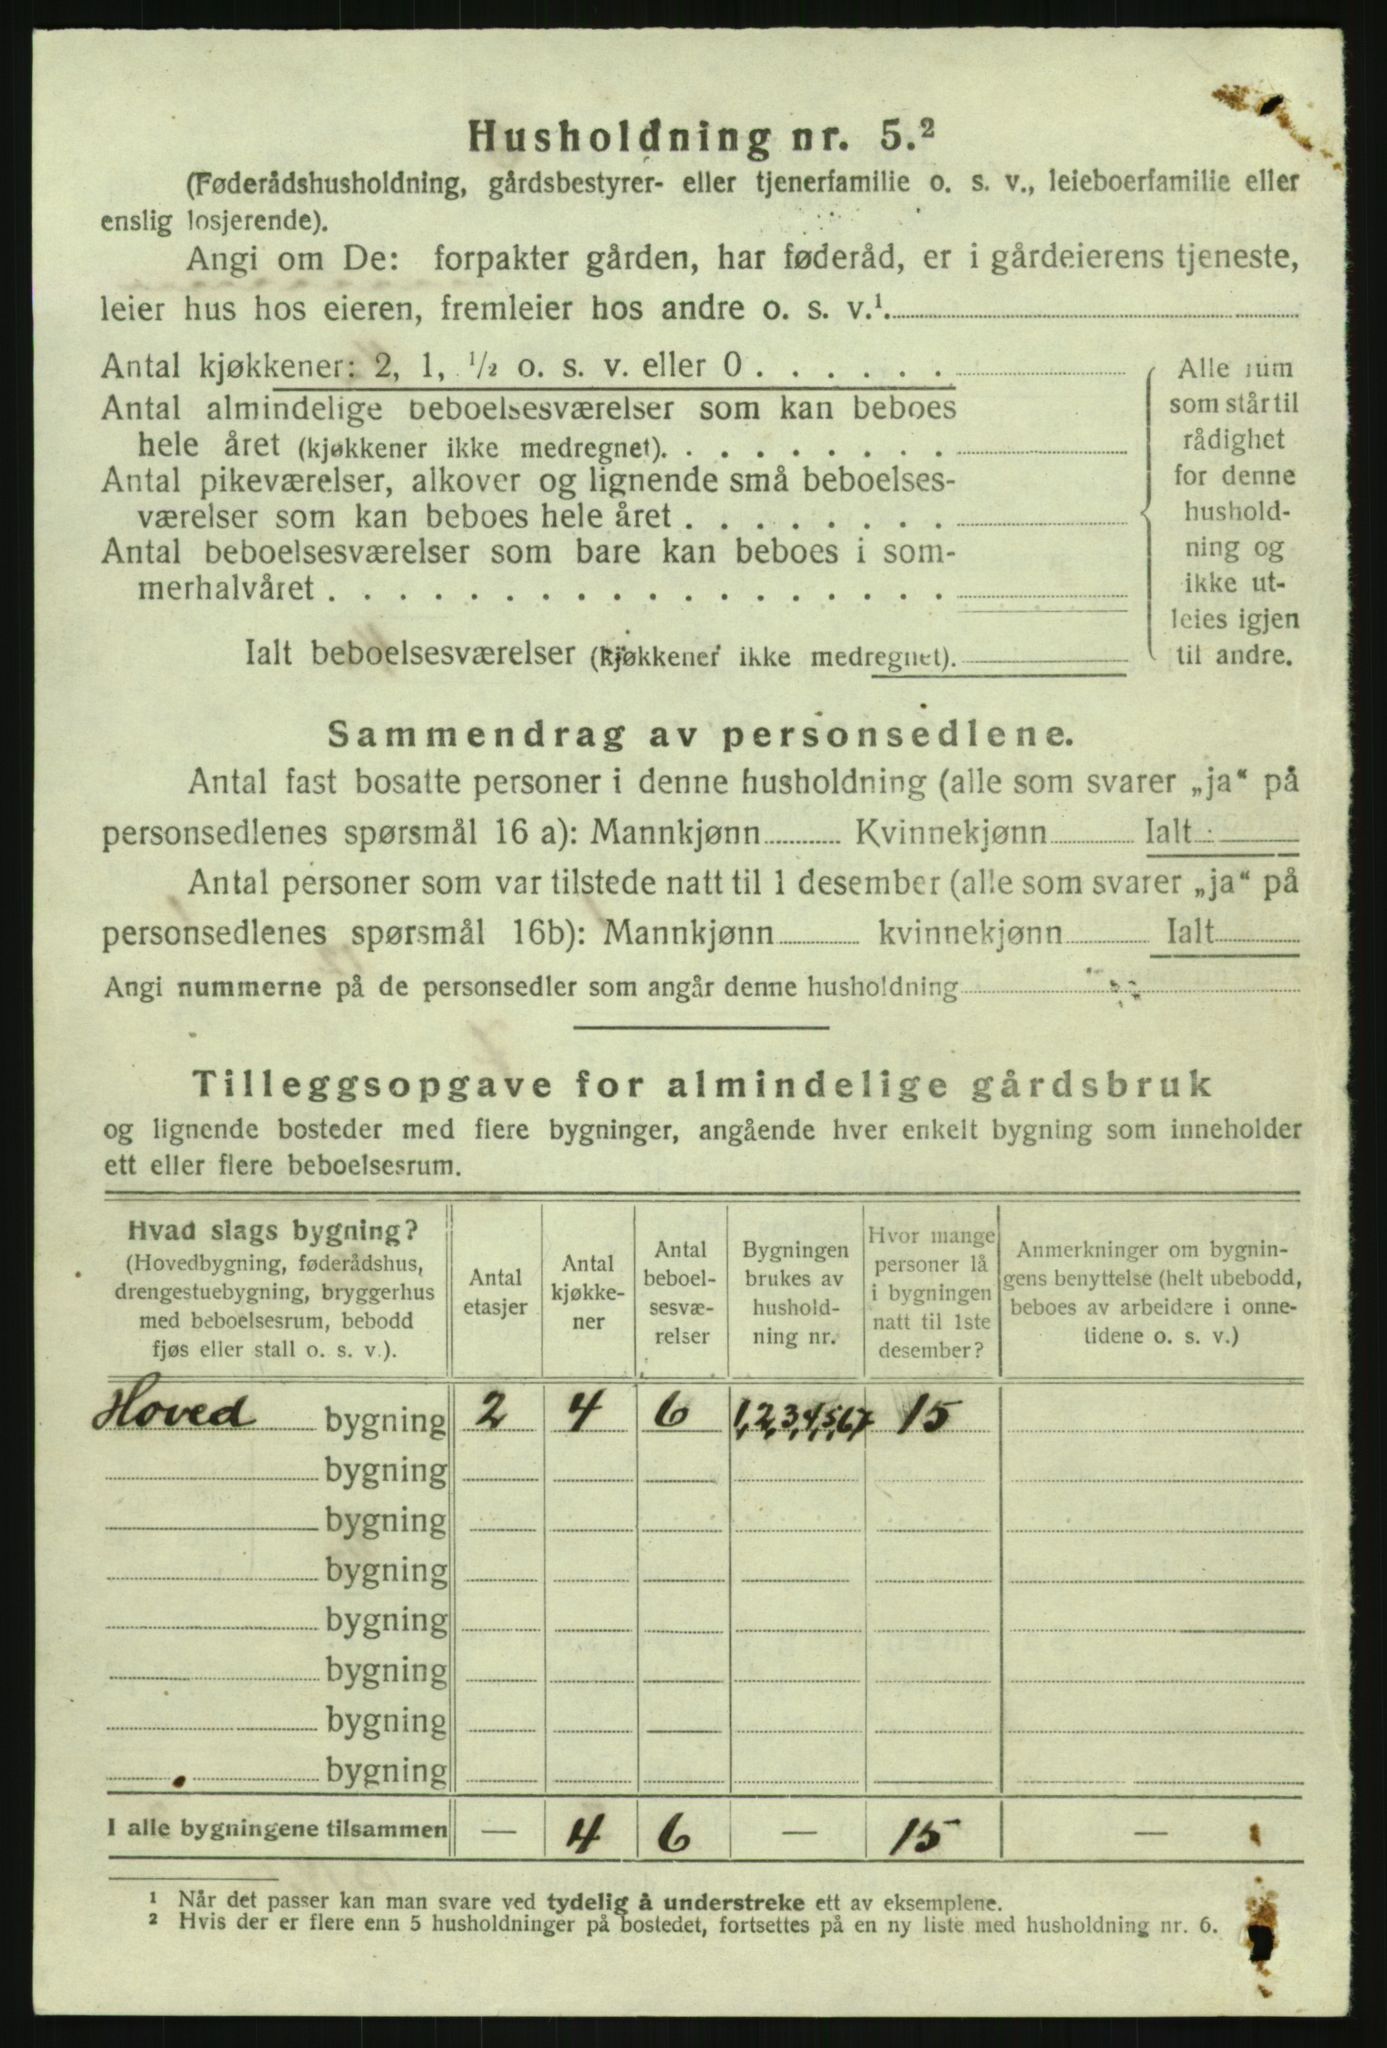 Husholdning nr. 5.²
(Føderådshusholdning, gårdsbestyrer- eller tjenerfamilie o. s. v., leieboerfamilie eller
enslig losjerende).
Angi om De: forpakter gården, har føderåd, er i gårdeierens tjeneste,
leier hus hos eieren, fremleier hos andre o. s. v.¹
Antal kjøkkener: 2, 1, ½ o. s. v. eller 0 . . . . . .
Antal almindelige beboelsesværelser som kan beboes
hele året (kjøkkener ikke medregnet). . . . . . . . .
Antal pikeværelser, alkover og lignende små beboelses-
værelser som kan beboes hele året . . . . . . . .
Antal beboelsesværelser som bare kan beboes i som-
merhalvåret . . . . . . . . . . . . . . . . . .
Ialt beboelsesværelser (kjøkkener ikke medregnet).
Alle rum
som står til
rådighet
for denne
hushold-
ning og
ikke ut-
leies igjen
til andre.
Sammendrag av personsedlene.
Antal fast bosatte personer i denne husholdning (alle som svarer „ja“ på
personsedlenes spørsmål 16 a): Mannkjønn Kvinnekjønn Ialt
Antal personer som var tilstede natt til 1 desember (alle som svarer „ja“ på
personsedlenes spørsmål 16b): Mannkjønn kvinnekjønn Ialt
Angi nummerne på de personsedler som angår denne husholdning
Tilleggsopgave for almindelige gårdsbruk
og lignende bosteder med flere bygninger, angående hver enkelt bygning som inneholder
ett eller flere beboelsesrum.
Hvad slags bygning?
(Hovedbygning, føderådshus,
drengestuebygning, bryggerhus
med beboelsesrum, bebodd
fjøs eller stall o. s. v.).
Antal
etasjer
Antal
kjøkke-
ner
Antal
beboel-
sesvæ-
relser
Bygningen
brukes av
hushold-
ning nr.
Hvor mange
personer lå
i bygningen
natt til 1ste
desember?
Anmerkninger om bygnin-
gens benyttelse (helt ubebodd,
beboes av arbeidere i onne-
tidene o. s. v.)
Hoved bygning 2 4 6 1,2,3,4,5,6,7 15
bygning
bygning
bygning
bygning
bygning
bygning
bygning
I alle bygningene tilsammen — 4 6 — 15 —
¹ Når det passer kan man svare ved tydelig å understreke ett av eksemplene.
² Hvis der er flere enn 5 husholdninger på bostedet, fortsettes på en ny liste med husholdning nr. 6.